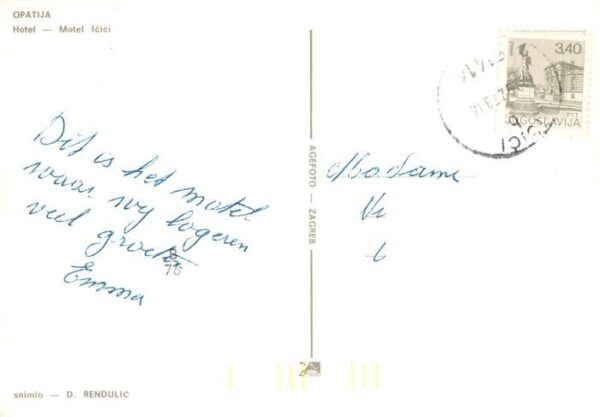 OPATIJA
Hotel — Motel Ičići
Dit is het motel
waar wij logeren
veel groeten
Emma
8
76
snimio — D. RENDULIĆ
AGEFOTO — ZAGREB
3,40
JUGOSLAVIJA
PTT
IČIĆI
Madame